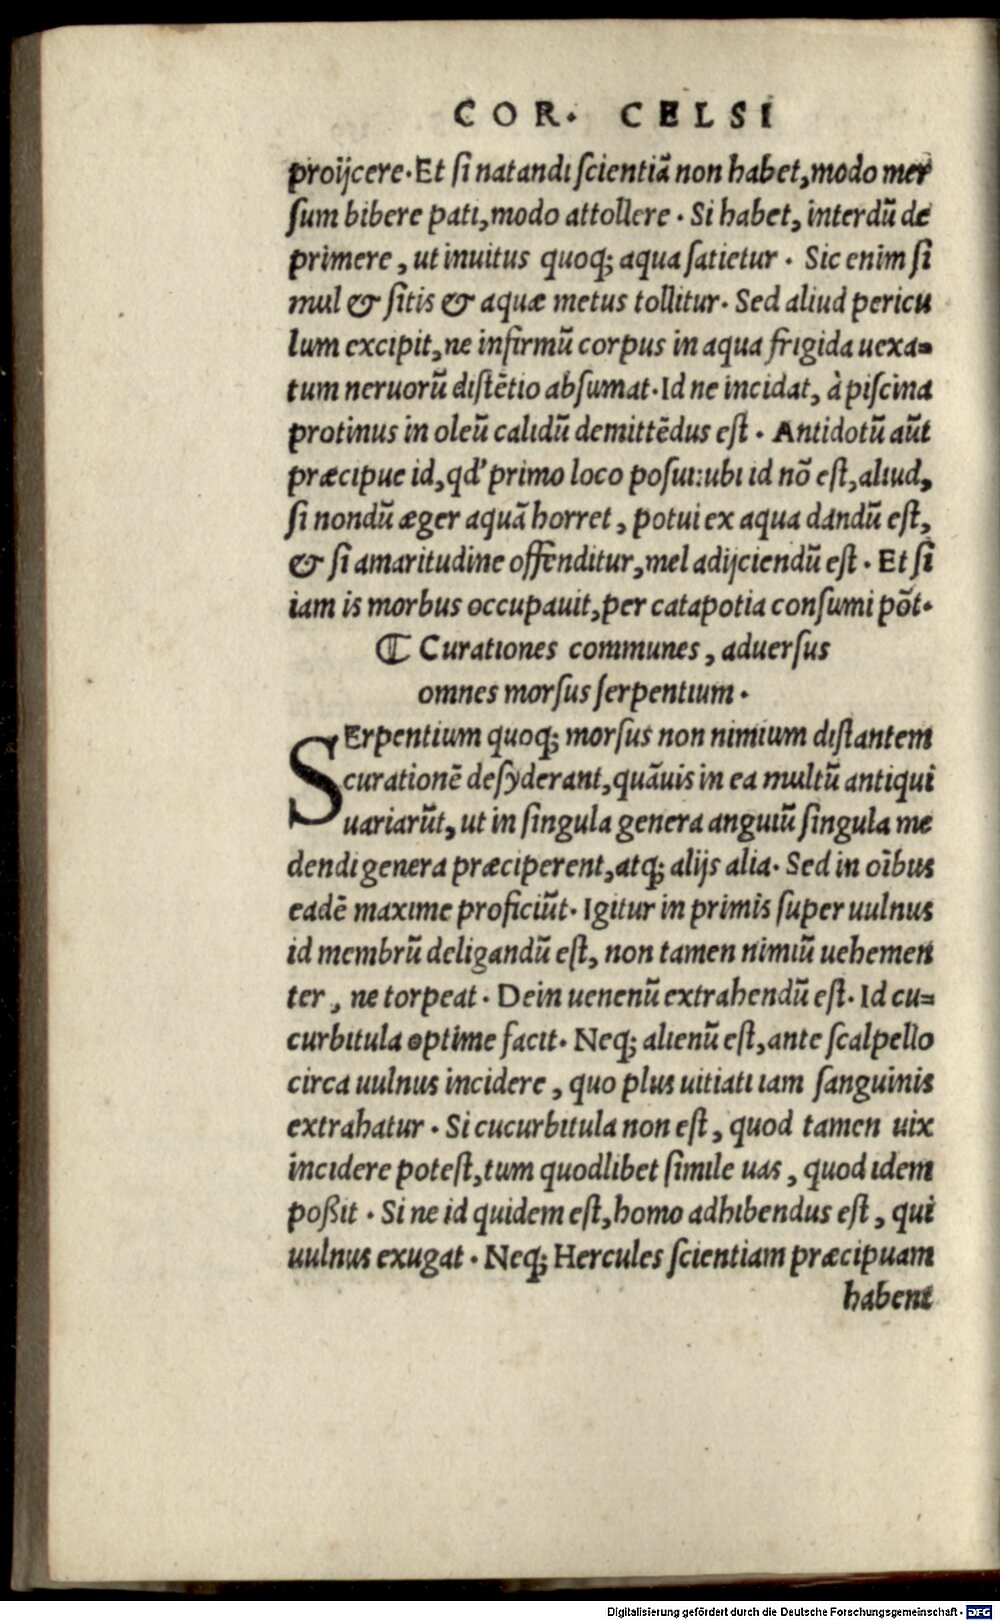 COR. CELSI
proijcere. Et si natandi scientiã non habet, modo mer
sum bibere pati, modo attollere. Si habet, interdũ de
primere, ut inuitus quoq; aqua satietur. Sic enim si
mul & sitis & aquæ metus tollitur. Sed aliud pericu
lum excipit, ne infirmũ corpus in aqua frigida uexa=
tum neruorũ distẽtio absumat. Id ne incidat, à piscina
protinus in oleũ calidũ demittẽdus est. Antidotũ aũt
præcipue id, qd' primo loco posui: ubi id nõ est, aliud,
si nondũ æger aquã horret, potui ex aqua dandũ est,
& si amaritudine offenditur, mel adijciendũ est. Et si
iam is morbus occupauit, per catapotia consumi põt.
¶ Curationes communes, aduersus
omnes morsus serpentium.
SErpentium quoq; morsus non nimium distantem
curationẽ desyderant, quãuis in ea multũ antiqui
uariarũt, ut in singula genera anguiũ singula me
dendi genera præciperent, atq; alijs alia. Sed in oĩbus
eadẽ maxime proficiũt. Igitur in primis super uulnus
id membrũ deligandũ est, non tamen nimiũ uehemen
ter, ne torpeat. Dein uenenũ extrahendũ est. Id cu=
curbitula optime facit. Neq; alienũ est, ante scalpello
circa uulnus incidere, quo plus uitiati iam sanguinis
extrahatur. Si cucurbitula non est, quod tamen uix
incidere potest, tum quodlibet simile uas, quod idem
poßit. Si ne id quidem est, homo adhibendus est, qui
uulnus exugat. Neq; Hercules scientiam præcipuam
habent
Digitalisierung gefördert durch die Deutsche Forschungsgemeinschaft - DFG